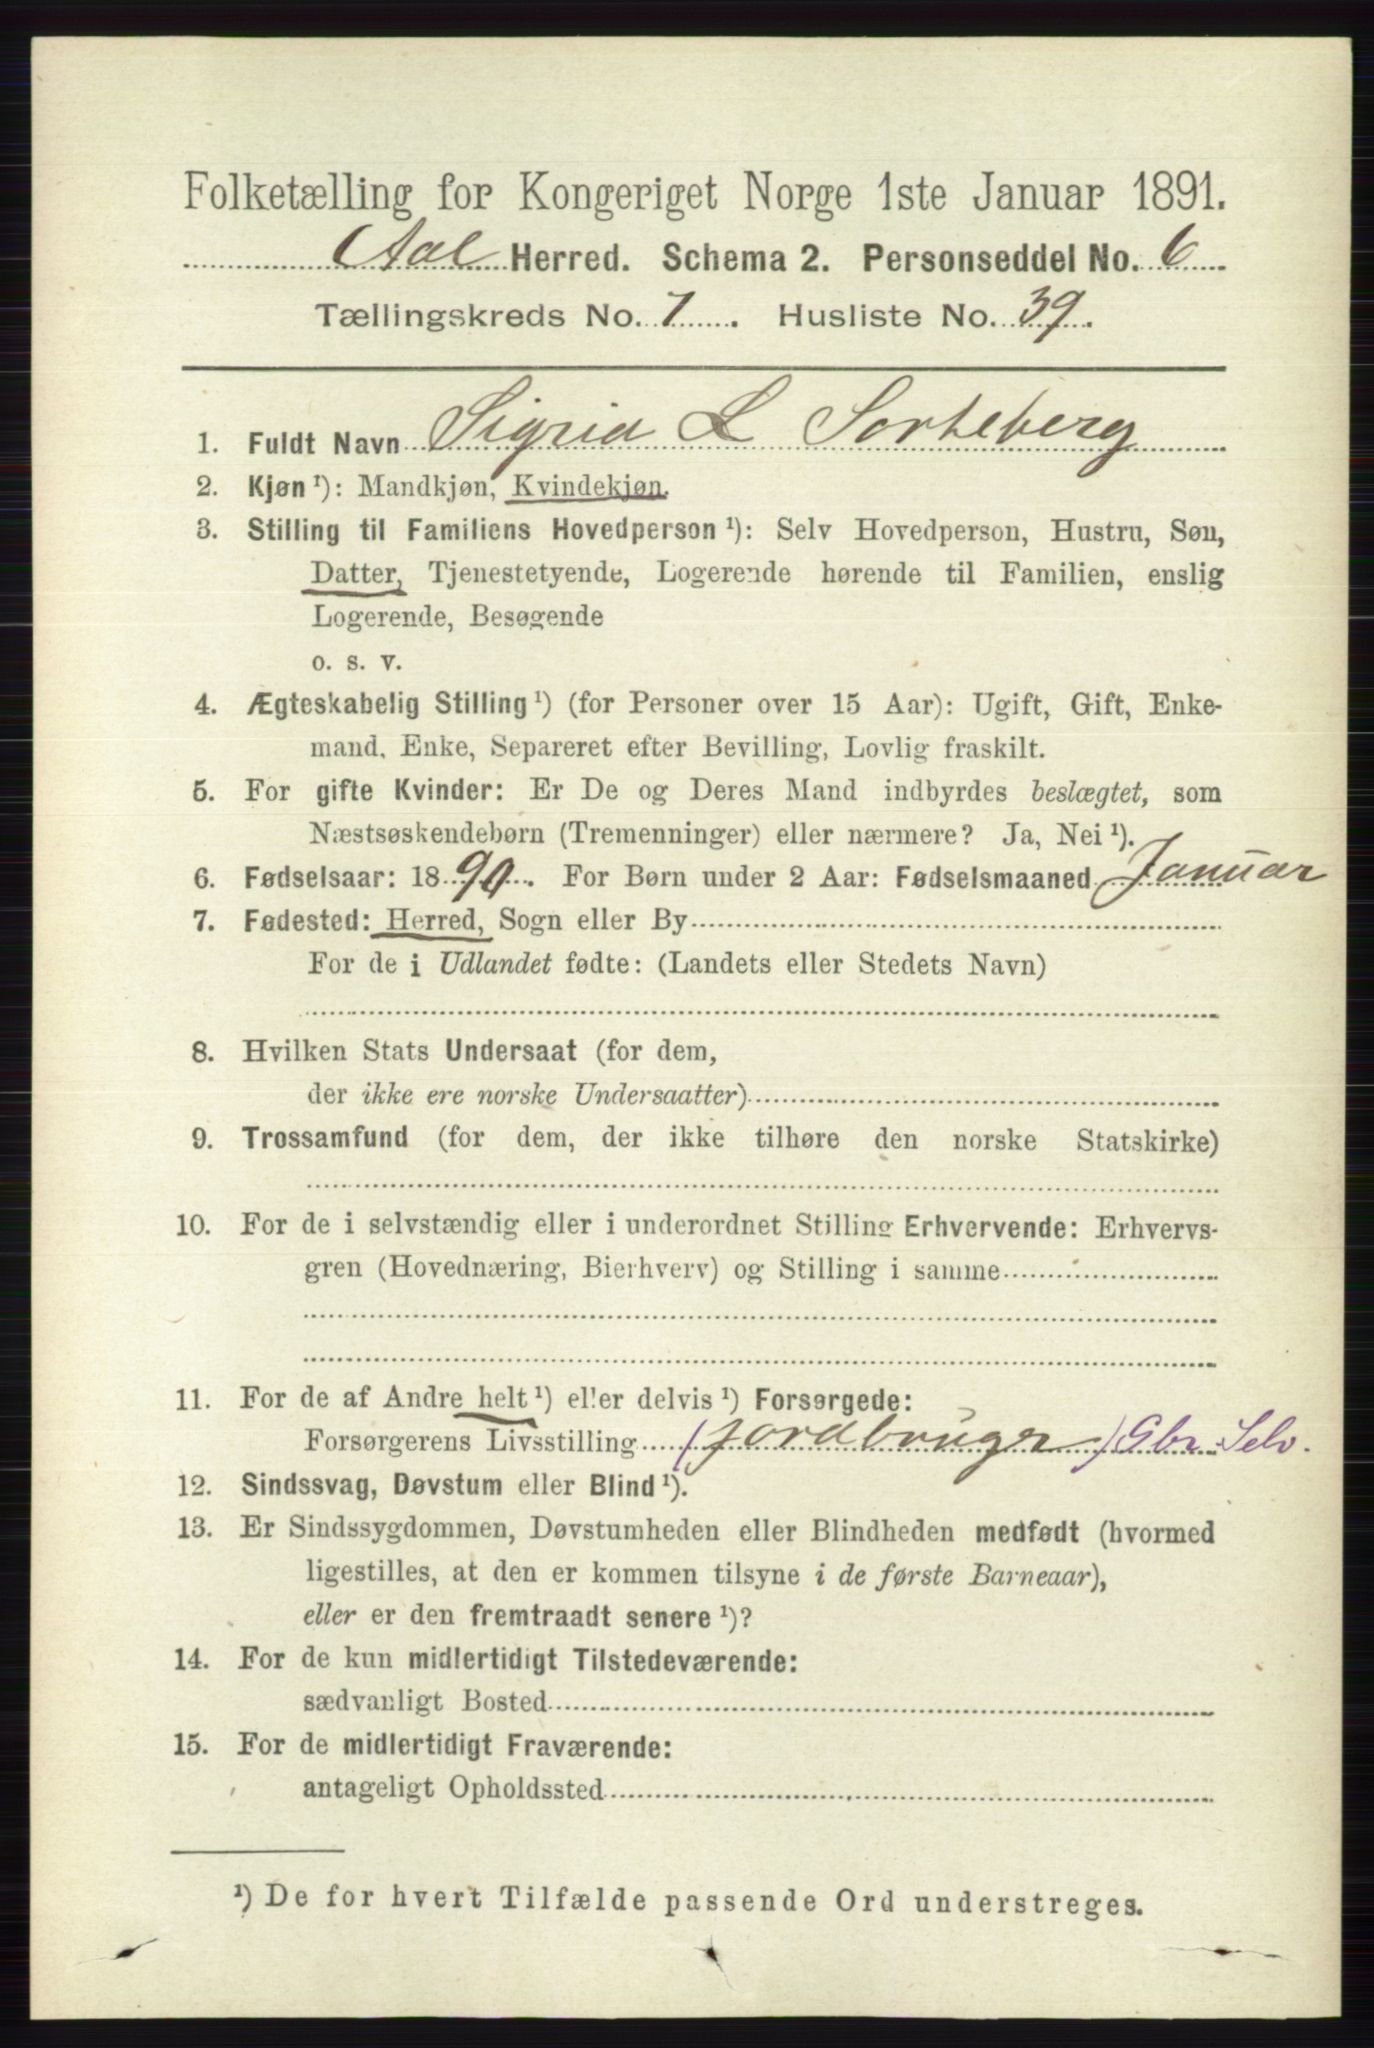 Folketælling for Kongeriget Norge 1ste Januar 1891.
Aal Herred. Schema 2. Personseddel No. 6
Tællingskreds No. 7. Husliste No. 39.
1. Fuldt Navn Sigrid L Sorteberg
2. Kjøn ¹): Mandkjøn, Kvindekjøn.
3. Stilling til Familiens Hovedperson ¹): Selv Hovedperson, Hustru, Søn,
Datter, Tjenestetyende, Logerende hørende til Familien, enslig
Logerende, Besøgende
o. s. v.
4. Ægteskabelig Stilling ¹) (for Personer over 15 Aar): Ugift, Gift, Enke-
mand, Enke, Separeret efter Bevilling, Lovlig fraskilt.
5. For gifte Kvinder: Er De og Deres Mand indbyrdes beslægtet, som
Næstsøskendebørn (Tremenninger) eller nærmere? Ja, Nei ¹).
6. Fødselsaar: 1890. For Børn under 2 Aar: Fødselsmaaned Januar
7. Fødested: Herred, Sogn eller By
For de i Udlandet fødte: (Landets eller Stedets Navn)
8. Hvilken Stats Undersaat (for dem,
der ikke ere norske Undersaatter)
9. Trossamfund (for dem, der ikke tilhøre den norske Statskirke)
10. For de i selvstændig eller i underordnet Stilling Erhvervende: Erhvervs-
gren (Hovednæring, Bierhverv) og Stilling i samme
11. For de af Andre helt ¹) eller delvis ¹) Forsørgede:
Forsørgerens Livsstilling (Jordbruger) Gbr Selv.
12. Sindssvag, Døvstum eller Blind ¹).
13. Er Sindssygdommen, Døvstumheden eller Blindheden medfødt (hvormed
ligestilles, at den er kommen tilsyne i de første Barneaar),
eller er den fremtraadt senere ¹)?
14. For de kun midlertidigt Tilstedeværende:
sædvanligt Bosted
15. For de midlertidigt Fraværende:
antageligt Opholdssted
¹) De for hvert Tilfælde passende Ord understreges.